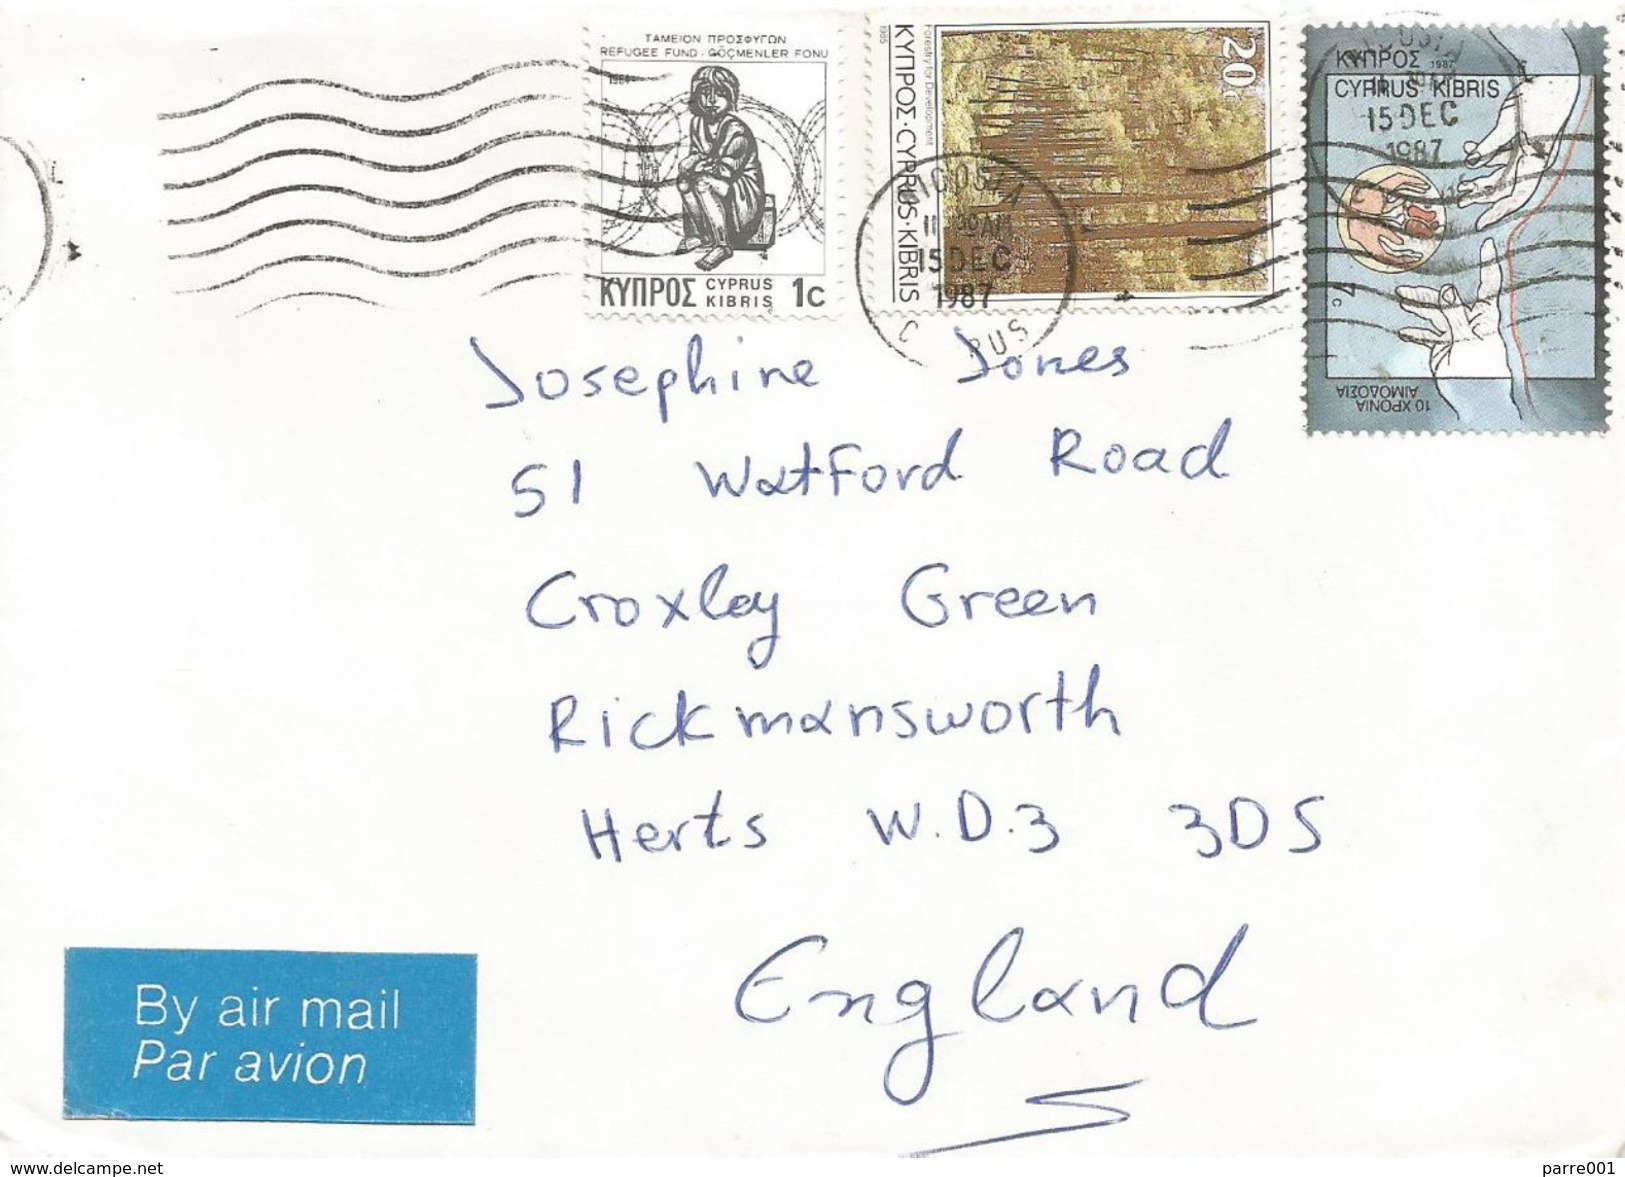 ΤΑΜΕΙΟΝ ΠΡΟΣΦΥΓΩΝ
REFUGEE FUND - GÖÇMENLER FONU
1984
ΚΥΠΡΟΣ CYPRUS KIBRIS 1c
Forestry for Development
1985
ΚΥΠΡΟΣ·CYPRUS·KIBRIS
20c
15 DEC
1987
ΚΥΠΡΟΣ 1987
CYPRUS KIBRIS
15 DEC
1987
7c
10 ΧΡΟΝΙΑ
ΑΙΜΟΔΟΣΙΑ
Josephine Jones
51 Watford Road
Croxley Green
Rickmansworth
Herts W.D.3 3DS
England
By air mail
Par avion
www.delcampe.net
parre001